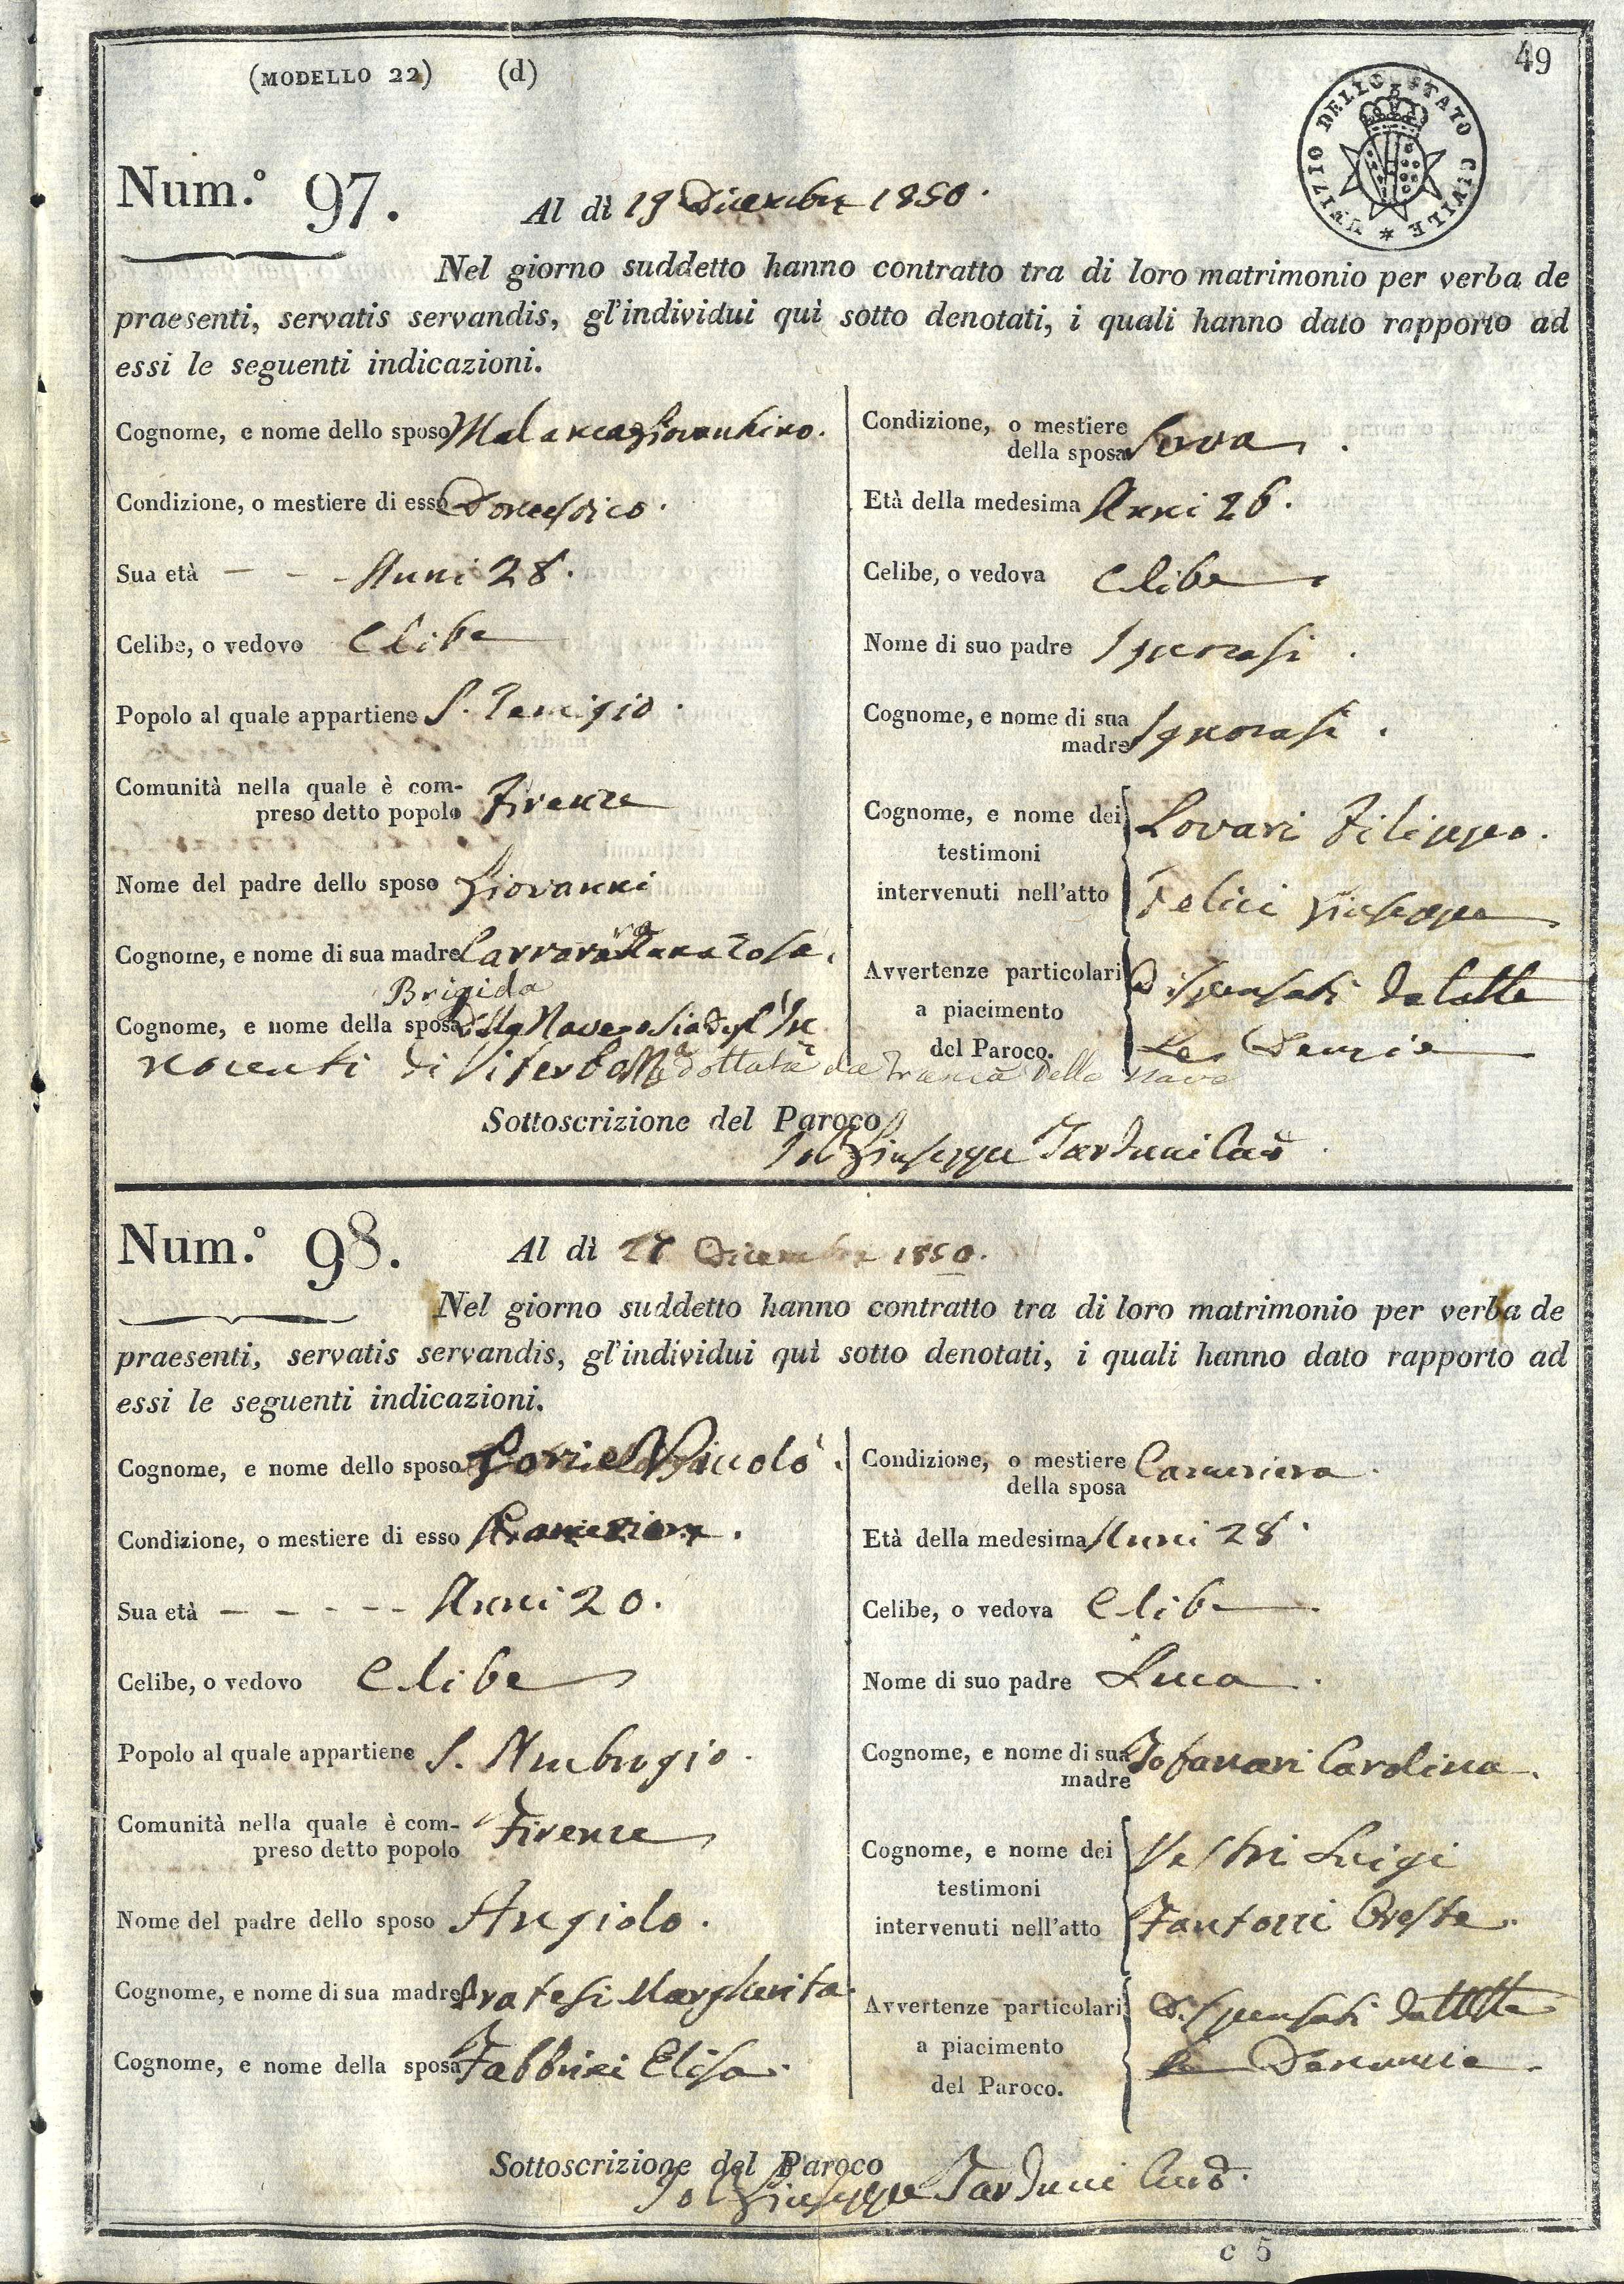 49
(MODELLO 22) (d)
UFIZIO DELLO STATO CIVILE
Num.º 97.
Al dì 19 Dicembre 1850.
Nel giorno suddetto hanno contratto tra di loro matrimonio per verba de
praesenti, servatis servandis, gl'individui quì sotto denotati, i quali hanno dato rapporto ad
essi le seguenti indicazioni.
Cognome, e nome dello sposo Giovacchino.
Condizione, o mestiere di esso Domestico.
Sua età - - - Anni 28.
Celibe, o vedovo Celibe
Popolo al quale appartiene S. Remigio.
Comunità nella quale è com-
preso detto popolo Firenze
Nome del padre dello sposo Giovanni
Cognome, e nome di sua madre Rosa.
Brigida
Cognome, e nome della sposa
nocenti di Viterbo adottata da Franca della Nave
Condizione, o mestiere
della sposa Serva.
Età della medesima Anni 26.
Celibe, o vedova Celibe
Nome di suo padre Ignorasi.
Cognome, e nome di sua
madre Ignorasi.
Cognome, e nome dei
testimoni
intervenuti nell'atto
Lovari Filippo.
Felici Giuseppe
Avvertenze particolari
a piacimento
del Paroco.
Dispensati da tutte
Le Denunzie
Sottoscrizione del Paroco
Giuseppe Tarducci
Num.º 98.
Al dì 27 Dicembre 1850.
Nel giorno suddetto hanno contratto tra di loro matrimonio per verba de
praesenti, servatis servandis, gl'individui quì sotto denotati, i quali hanno dato rapporto ad
essi le seguenti indicazioni.
Cognome, e nome dello sposo Niccolò.
Condizione, o mestiere di esso
Sua età - - - - - Anni 20.
Celibe, o vedovo Celibe
Popolo al quale appartiene S. Ambrogio.
Comunità nella quale è com-
preso detto popolo Firenze
Nome del padre dello sposo Angiolo.
Cognome, e nome di sua madre Pratesi Margherita.
Cognome, e nome della sposa Fabbrini Elisa.
Condizione, o mestiere
della sposa Cameriera.
Età della medesima Anni 28.
Celibe, o vedova Celibe
Nome di suo padre Luca.
Cognome, e nome di sua
madre Tofanari Carolina.
Cognome, e nome dei
testimoni
intervenuti nell'atto
Vestri Luigi
Fantoni Oreste.
Avvertenze particolari
a piacimento
del Paroco.
Dispensati da tutte
le Denunzie.
Sottoscrizione del Paroco
Giuseppe Tarducci
c 5